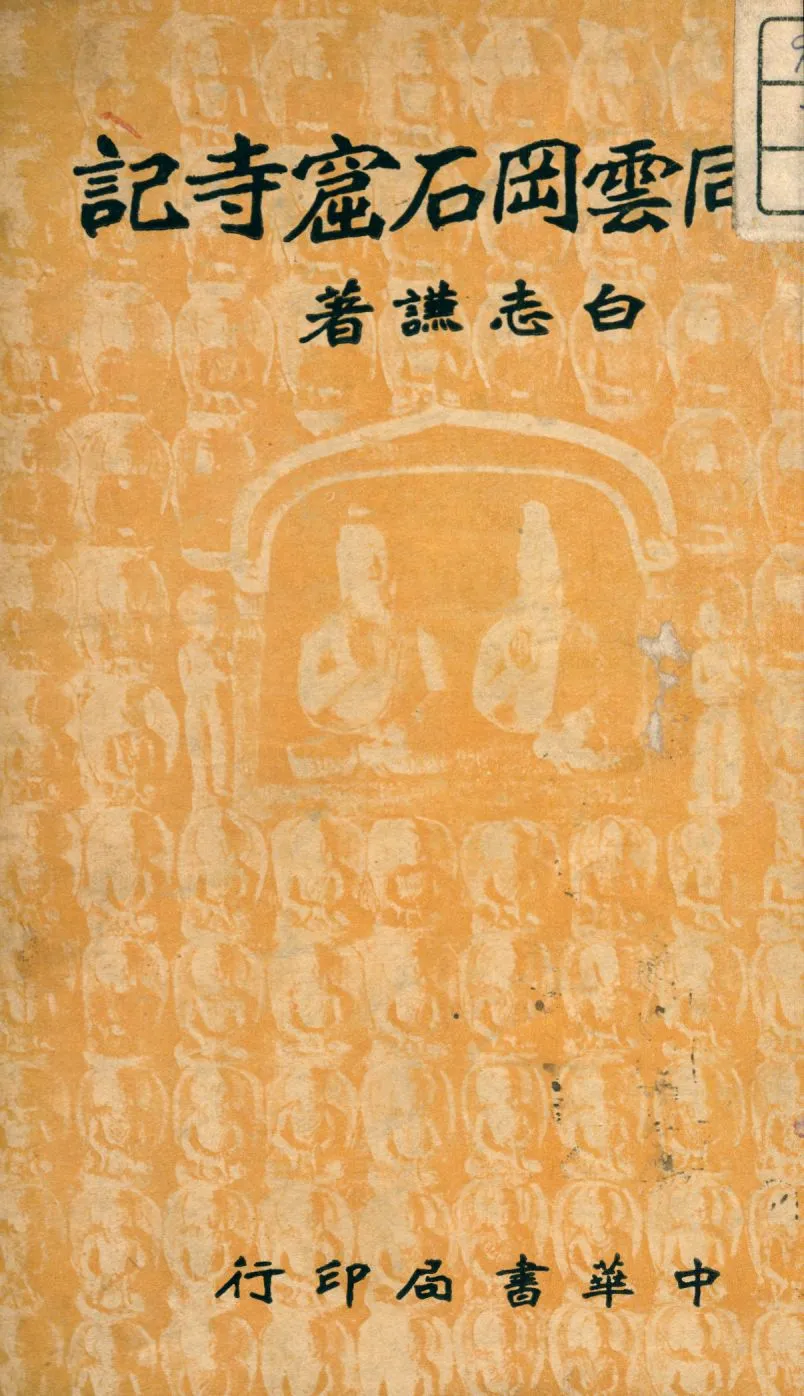 同雲岡石窟寺記
白志謙著
中華書局印行